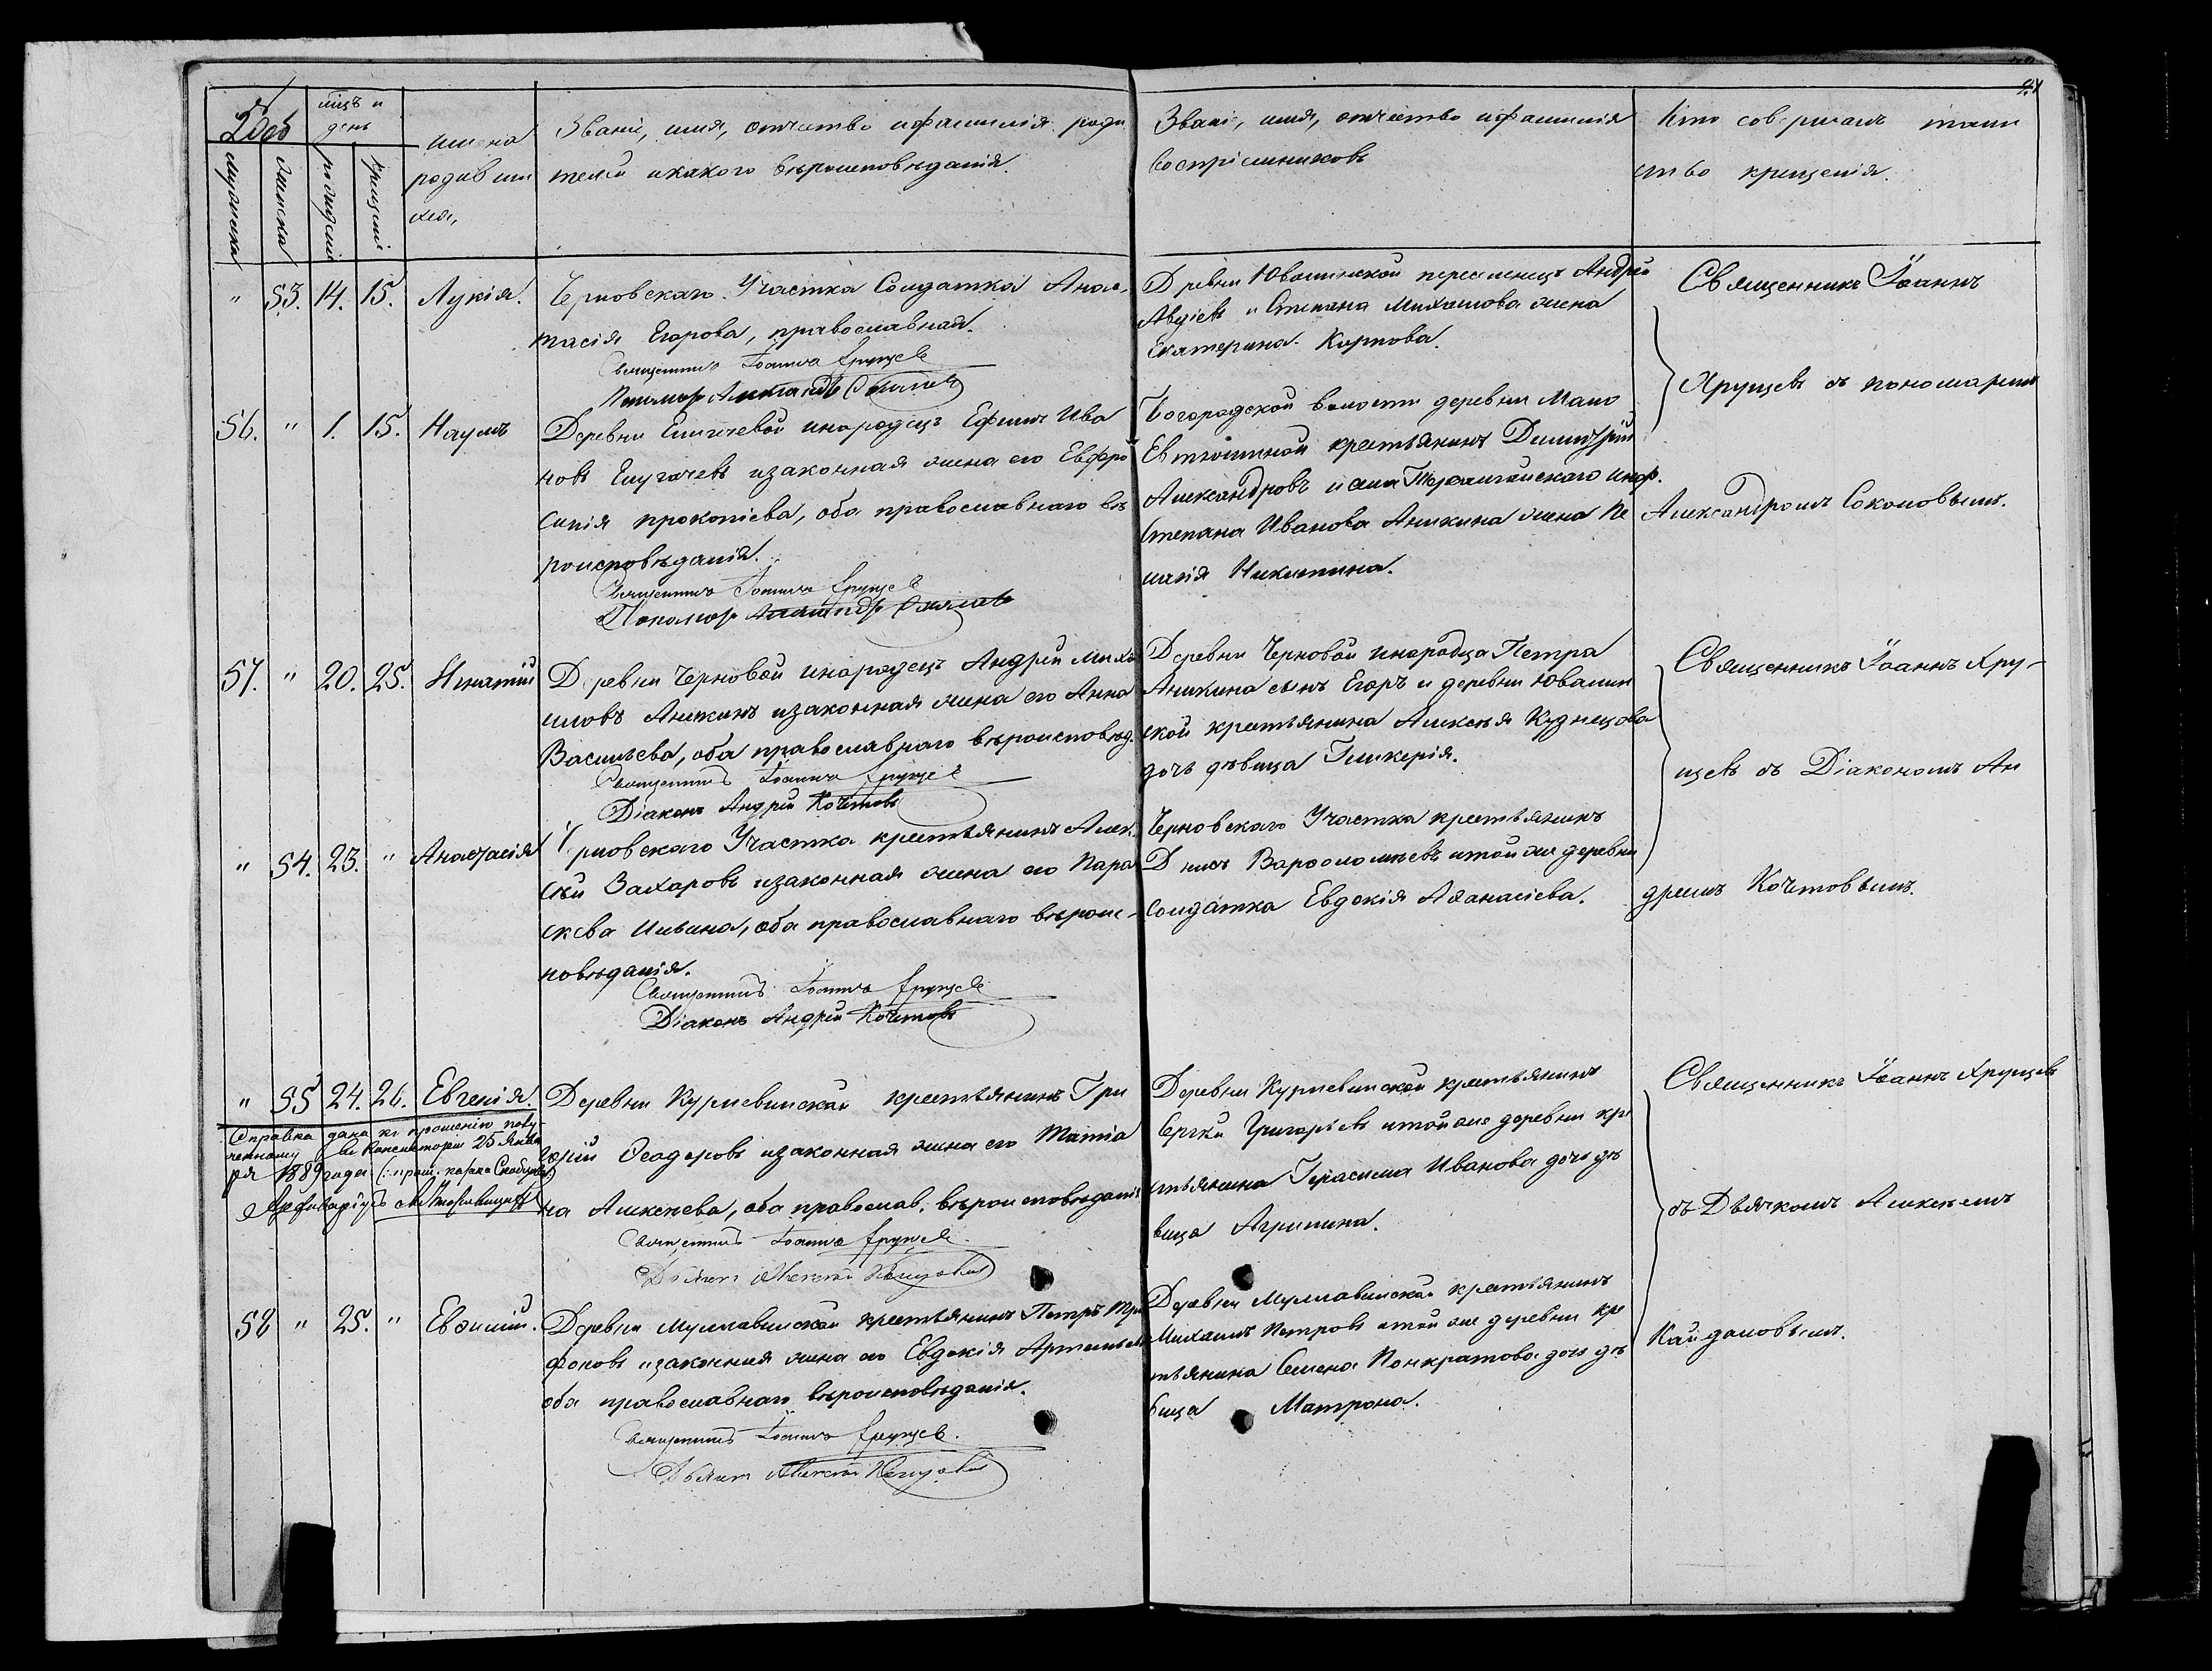 мцъ и
день
Имена
родивши
хся,
Званіе, имя, отчество и фамилія роди
телей и какого вѣроисповѣданія.
Званіе, имя, отчество и фамилія
воспріемниковъ
Кто совершалъ таин
ство крещенія.
Мужеска
Женска
рожденія
крещенія
" 53. 14. 15. Лукія.
Черновскаго Участка Солдатка Анас-
тасія Егорова, православная.
Священникъ Іоаннъ Хрущевъ
Пономарь Александръ Соколовъ
Деревни Ювалинской переселенецъ Андрей
Авдіевъ и Степана Михайлова жена
Екатерина Карпова.
Священникъ Іоаннъ
Хрущевъ съ пономаремъ
Александромъ Соколовымъ.
56. " 1. 15. Наумъ
Деревни Елигачевой инородецъ Ефимъ Ива
новъ Елугачевъ и законная жена его Евфро
синія Прокопіева, оба православнаго вѣ
роисповѣданія.
Священникъ Іоаннъ Хрущевъ
Пономарь Александръ Соколовъ
Богородской волости деревни Мало
Евтюшиной крестьянинъ Димитрій
Александровъ и
Степана Иванова Аникина жена Пе
лагія Никитина.
57. " 20. 25. Игнатій
Деревни Черновой инородецъ Андрей Миха
иловъ Аникинъ и законная жена его Анна
Васильева, оба православнаго вѣроисповѣд.
Священникъ Іоаннъ Хрущевъ
Діаконъ Андрей Кочетовъ
Деревни Черновой инородца Петра
Аникина сынъ Егоръ и деревни Ювалин
ской крестьянина Алексѣя Кузнецова
дочь дѣвица Гликерія.
Священникъ Іоаннъ Хру-
щевъ съ Діакономъ Ан
дреемъ Кочетовымъ.
" 54. 23. " Анастасія
Черновскаго Участка крестьянинъ Алек
сѣй Захаровъ и законная жена его Пара
скева Ильина, оба православнаго вѣроис-
повѣданія.
Священникъ Іоаннъ Хрущевъ
Діаконъ Андрей Кочетовъ
Черновскаго Участка крестьянинъ
Денисъ Варфоломѣевъ и той же деревни
солдатка Евдокія Аѳанасіева.
" 55 24. 26. Евгенія.
Справка дана къ прошенію полу
ченному въ Консисторіи 25 Янва
ря 1889 года
Архиваріусъ
Деревни Курлевинской крестьянинъ Гри
горій Ѳеодоровъ и законная жена его Татіа
на Алексѣева, оба православ. вѣроисповѣданія
Священникъ Іоаннъ Хрущевъ
Дьячекъ Алексѣй Кайдаловъ
Деревни Курлевинской крестьянинъ
Сергѣй Григорьевъ и той же деревни кре
стьянина Герасима Иванова дочь дѣ
вица Агрипина.
Священникъ Іоаннъ Хрущевъ
съ Дьячкомъ Алексѣемъ
Кайдаловымъ.
58 " 25. " Евѳимій.
Деревни Муллавинской крестьянинъ Петръ Три
фоновъ и законная жена его Евдокія Артемьева
оба православнаго вѣроисповѣданія.
Священникъ Іоаннъ Хрущевъ.
Дьячекъ Алексѣй Кайдаловъ
Деревни Муллавинской крестьянинъ
Михаилъ Петровъ и той же деревни кре
стьянина Семена Панкратова дочь дѣ
вица Матрона.